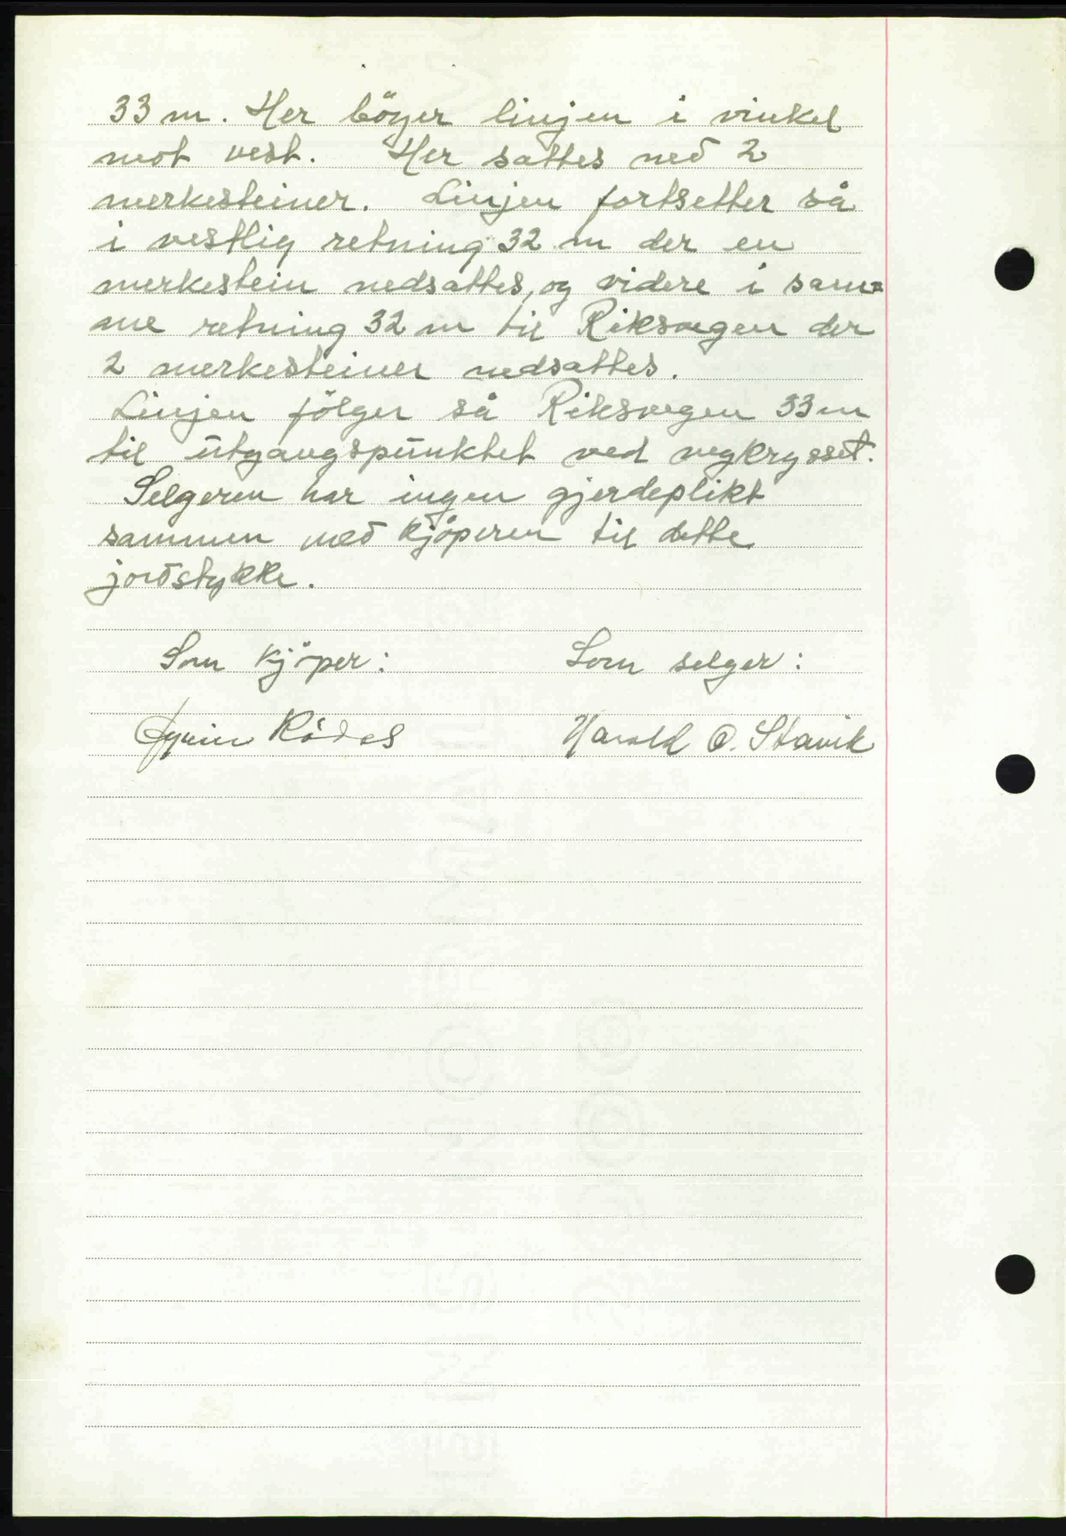 33 m. Her böyer linjen i vinkel
mot vest. Her sattes ned 2
merkesteiner. Linjen fortsetter så
i vestlig retning 32 m der en
merkestein nedsattes, og videre i sam=
me retning 32 m til Riksvegen der
2 merkesteiner nedsattes.
Linjen fölger så Riksvegen 33 m
til utgangspunktet ved vegkrysset.
Selgeren har ingen gjerdeplikt
sammen med kjöperen til dette
jordstykke.
Som kjöper: Som selger:
Harald O. Stavik